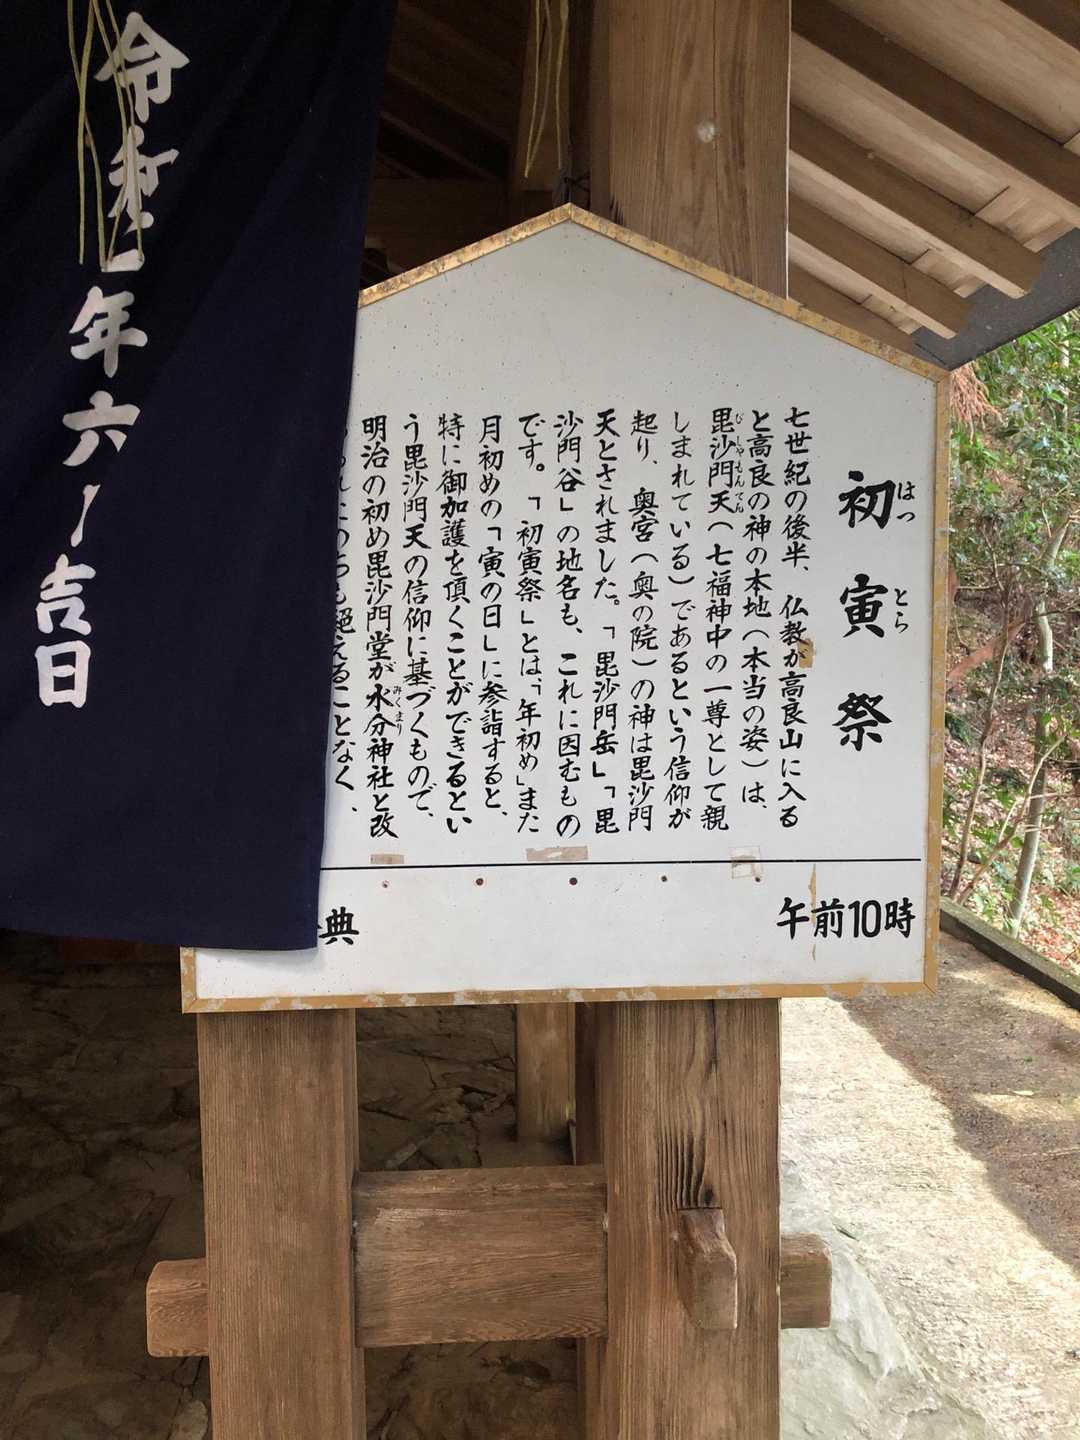 初寅祭
はつ とら
七世紀の後半、仏教が高良山に入る
と高良の神の本地(本当の姿)は、
毘沙門天(七福神中の一尊として親
びしゃもんてん
しまれている)であるという信仰が
起り、奥宮(奥の院)の神は毘沙門
天とされました。「毘沙門岳」「毘
沙門谷」の地名も、これに因むもの
です。「初寅祭」とは、「年初め」また
月初めの「寅の日」に参詣すると、
特に御加護を頂くことができるとい
う毘沙門天の信仰に基づくもので、
明治の初め毘沙門堂が水分神社と改
みくまり
絶えることなく、
午前10時
典
令和 年六 吉日